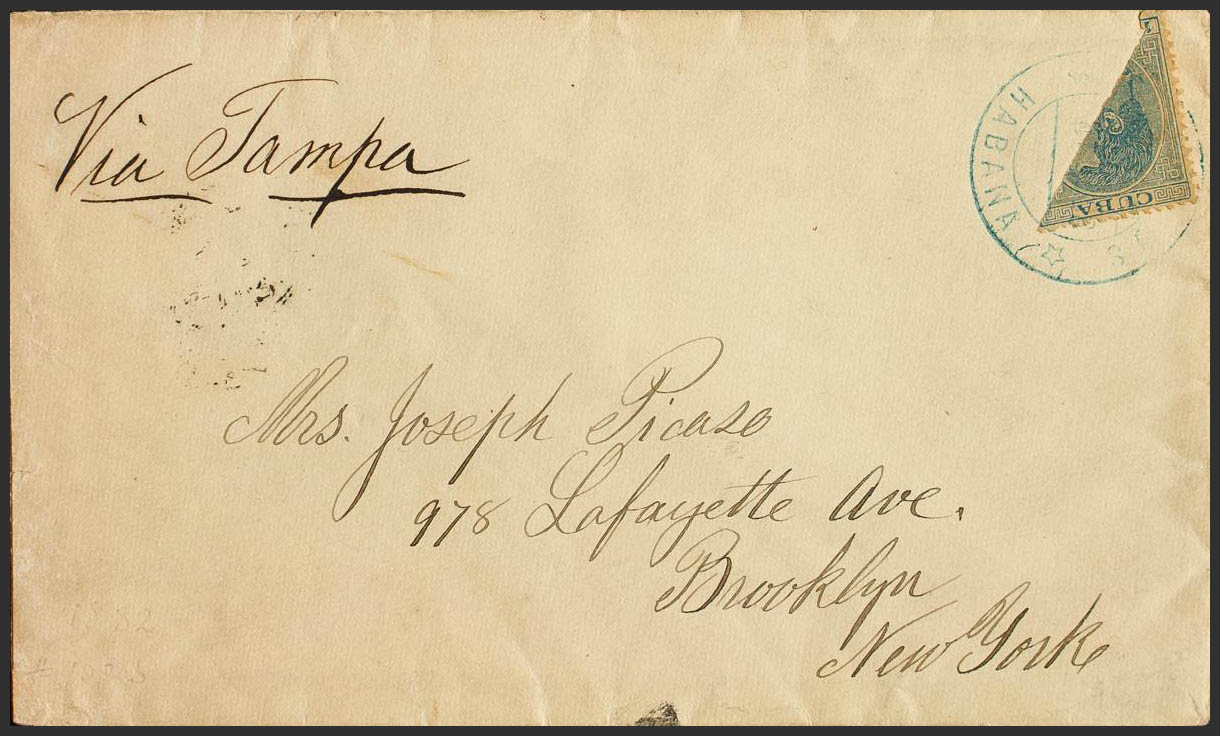 Via Tampa
HABANA
CUBA
Mrs. Joseph Picaso
978 Lafayette Ave.
Brooklyn
New York
1882